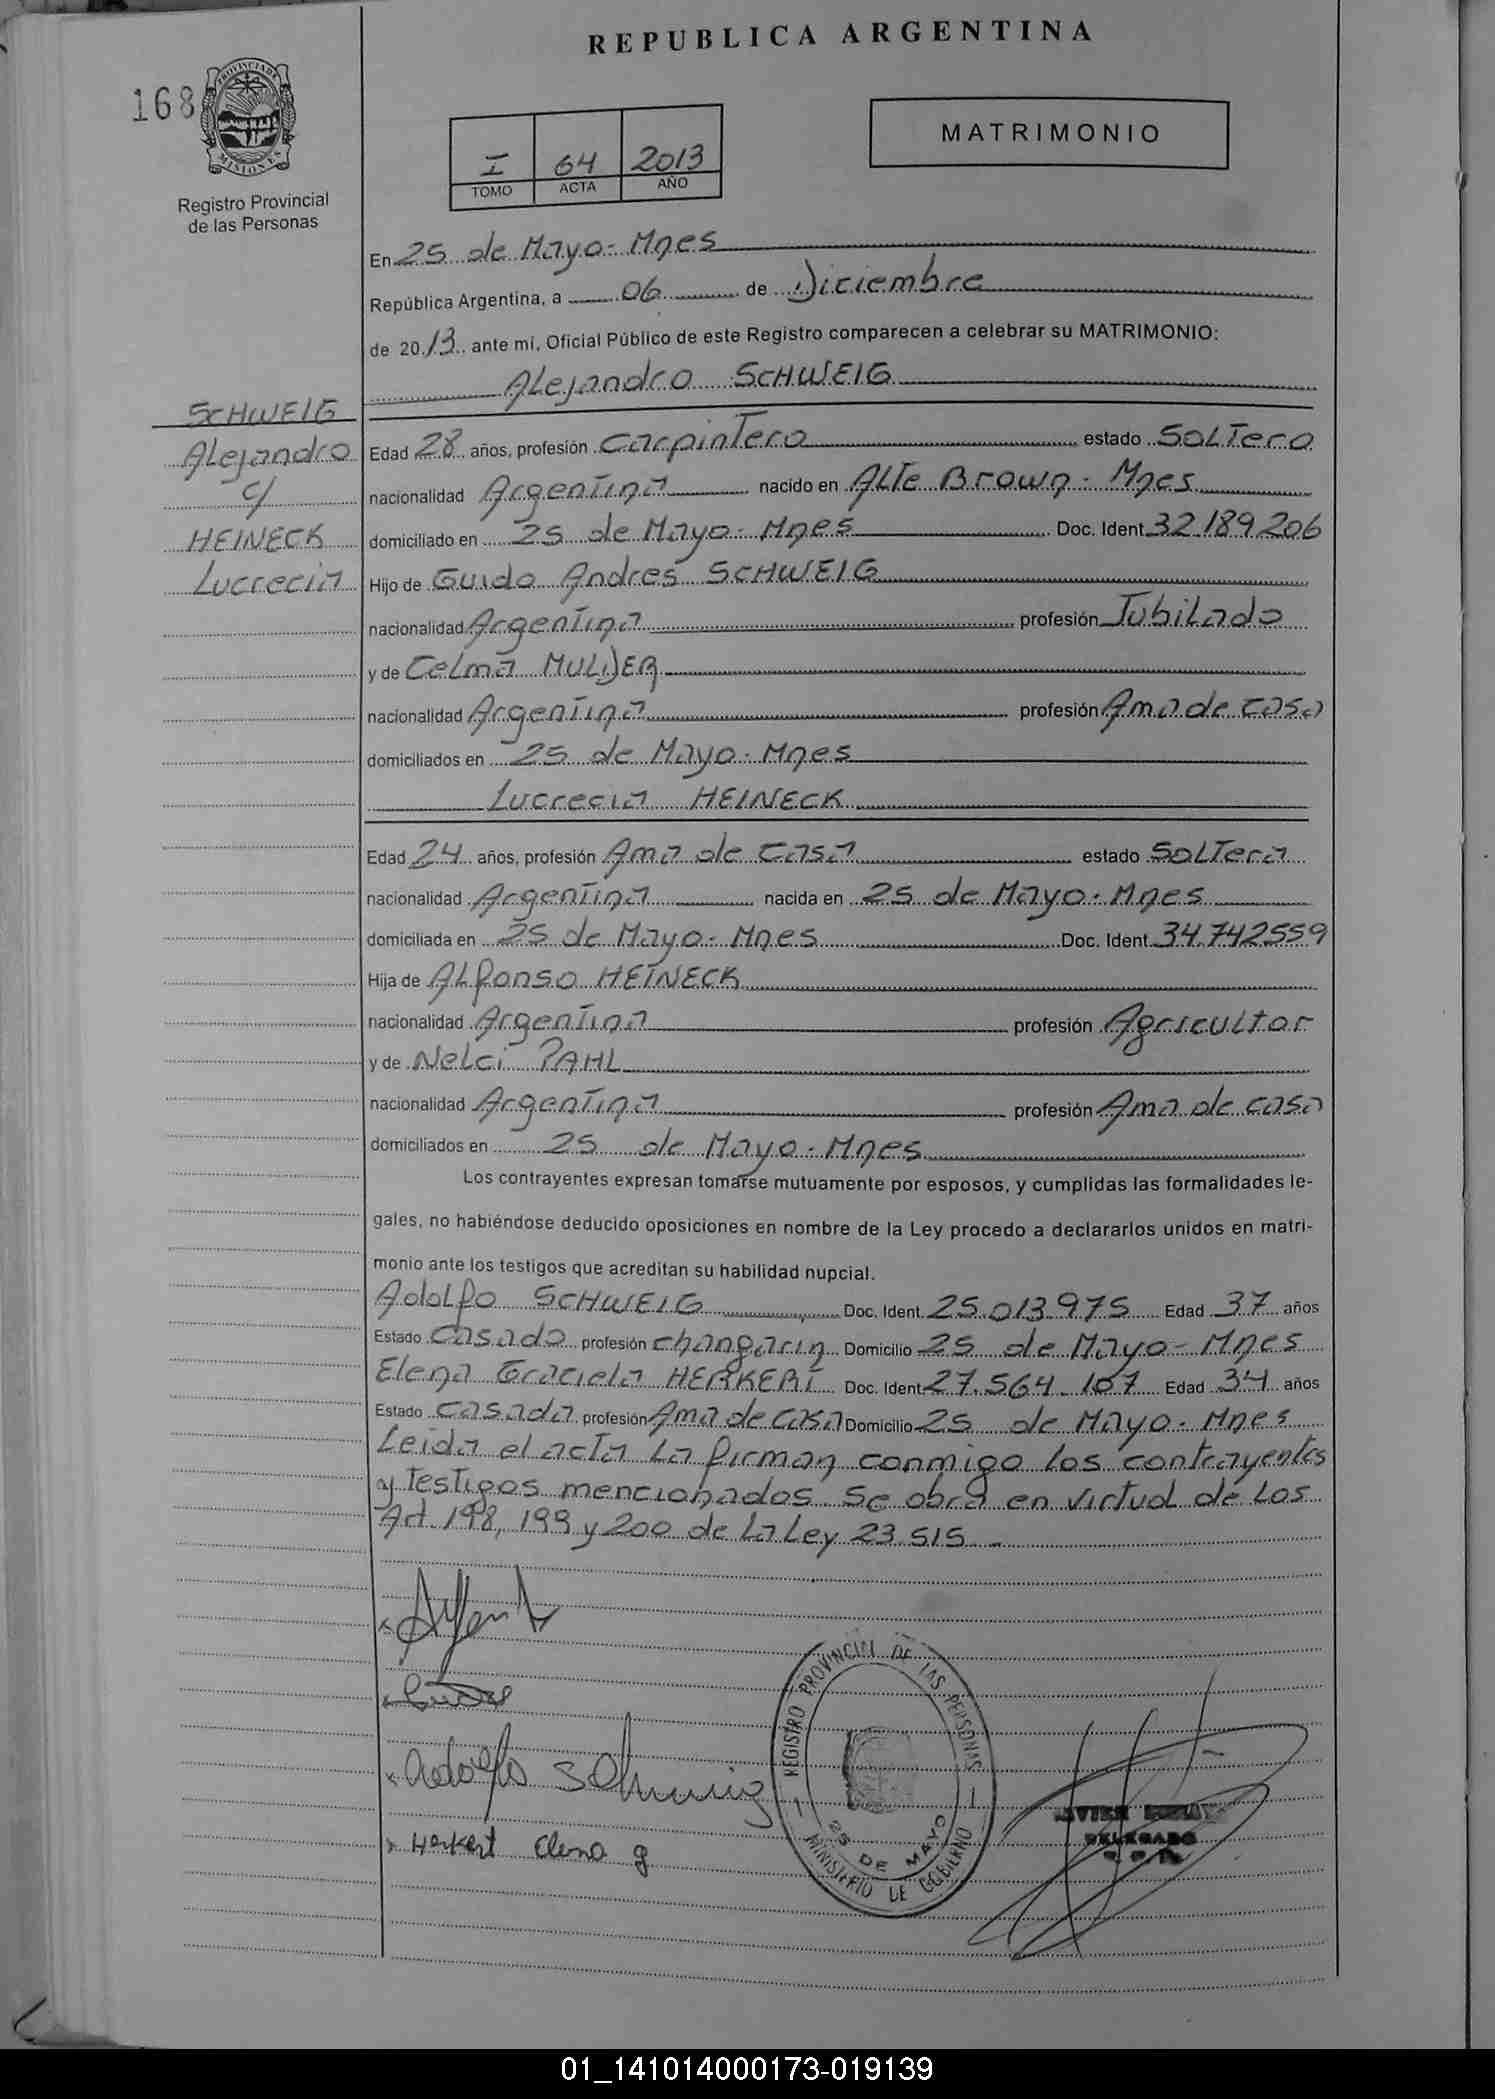 REPUBLICA ARGENTINA
168
PROVINCIA DE
MISIONES
Registro Provincial
de las Personas
I 64 2013
TOMO ACTA AÑO
MATRIMONIO
En 25 de Mayo - Mnes
República Argentina, a 06 de Diciembre
de 2013 ante mí, Oficial Público de este Registro comparecen a celebrar su MATRIMONIO:
Alejandro SCHWEIG
SCHWEIG
Alejandro
c/
HEINECK
Lucrecia
Edad 28 años, profesión Carpintero estado Soltero
nacionalidad Argentina nacido en Alte Brown - Mnes
domiciliado en 25 de Mayo - Mnes Doc. Ident. 32.189.206
Hijo de Guido Andres SCHWEIG
nacionalidad Argentina profesión Jubilado
y de Celma MULDER
nacionalidad Argentina profesión Ama de casa
domiciliados en 25 de Mayo - Mnes
Lucrecia HEINECK
Edad 24 años, profesión Ama de casa estado Soltera
nacionalidad Argentina nacida en 25 de Mayo - Mnes
domiciliada en 25 de Mayo - Mnes Doc. Ident. 34.742559
Hija de Alfonso HEINECK
nacionalidad Argentina profesión Agricultor
y de Nelci PAHL
nacionalidad Argentina profesión Ama de casa
domiciliados en 25 de Mayo - Mnes
Los contrayentes expresan tomarse mutuamente por esposos, y cumplidas las formalidades le-
gales, no habiéndose deducido oposiciones en nombre de la Ley procedo a declararlos unidos en matri-
monio ante los testigos que acreditan su habilidad nupcial.
Adolfo SCHWEIG Doc. Ident. 25.013.975 Edad 37 años
Estado Casado profesión changarin Domicilio 25 de Mayo - Mnes
Elena Graciela HERKERT Doc. Ident. 27.564.107 Edad 34 años
Estado Casada profesión Ama de casa Domicilio 25 de Mayo - Mnes
Leida el acta la firman conmigo los contrayentes
y testigos mencionados se obra en virtud de los
Art. 198, 199 y 200 de la Ley 23.515.-
Adolfo Schweig
Herkert Elena g
REGISTRO PROVINCIAL DE LAS PERSONAS
25 DE MAYO
MINISTERIO DE GOBIERNO
DELEGADO
01_141014000173-019139